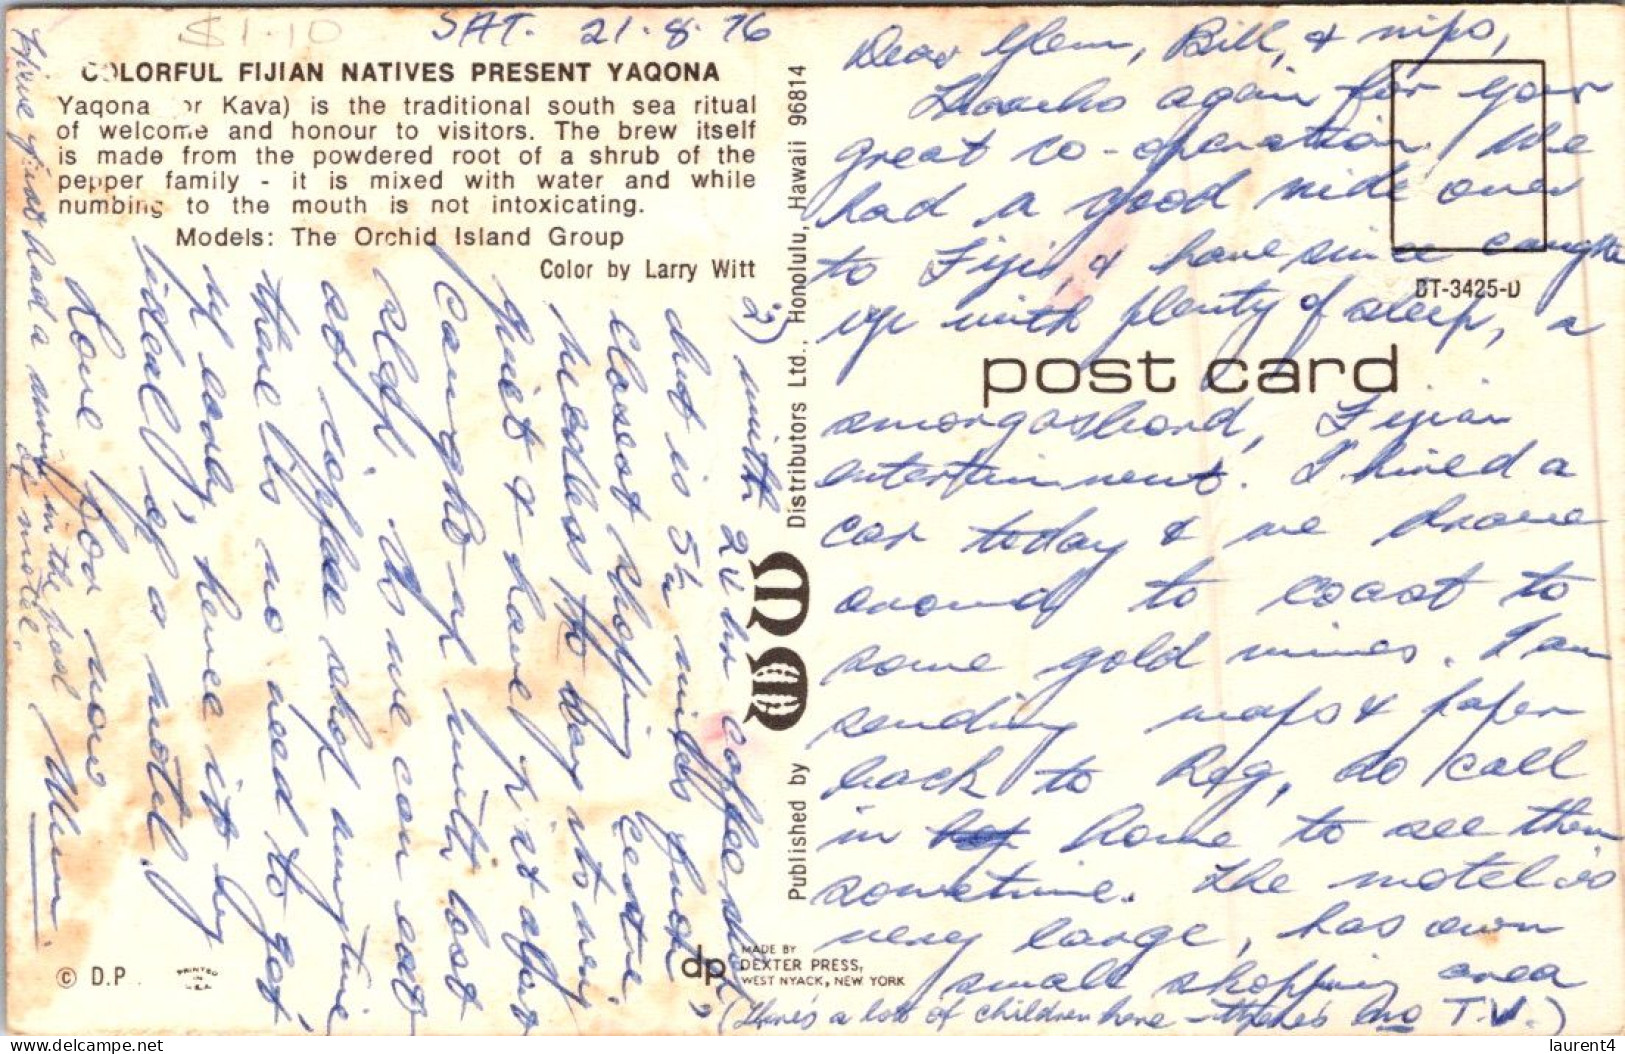 $1.10
SAT. 21.8.76
COLORFUL FIJIAN NATIVES PRESENT YAQONA
Yaqona or Kava) is the traditional south sea ritual
of welcome and honour to visitors. The brew itself
is made from the powdered root of a shrub of the
pepper family - it is mixed with water and while
numbing to the mouth is not intoxicating.
Models: The Orchid Island Group
Color by Larry Witt
Dear Glenn, Bill, & nips,
again for your
great co-operation. We
had a good ride over
to Fiji, & have since caught
up with plenty of sleep, a
smorgasbord, Fijian
entertainment. I hired a
car today & we drove
around to coast to
some gold mines. I am
sending maps & paper
back to Reg, do call
in home to see them
sometime. The motel is
very large, has own
small shopping area
(There's a lot of children here - there's no T.V.)
2) with 24 hr coffee shop,
but is 5½ miles from
closest shopping centre.
Needless to say its very
quiet & have it after
caught up with lost
sleep. As we can eat
at coffee shop anytime
there is no need to get
up early, hence it by
ideal of a motel.
Love for now
Mum
Have just had a swim in the pool
at motel.
post card
DT-3425-D
Published by Distributors Ltd., Honolulu, Hawaii 96814
© D.P.
PRINTED
IN
U.S.A.
dp
MADE BY
DEXTER PRESS,
WEST NYACK, NEW YORK
laurent4